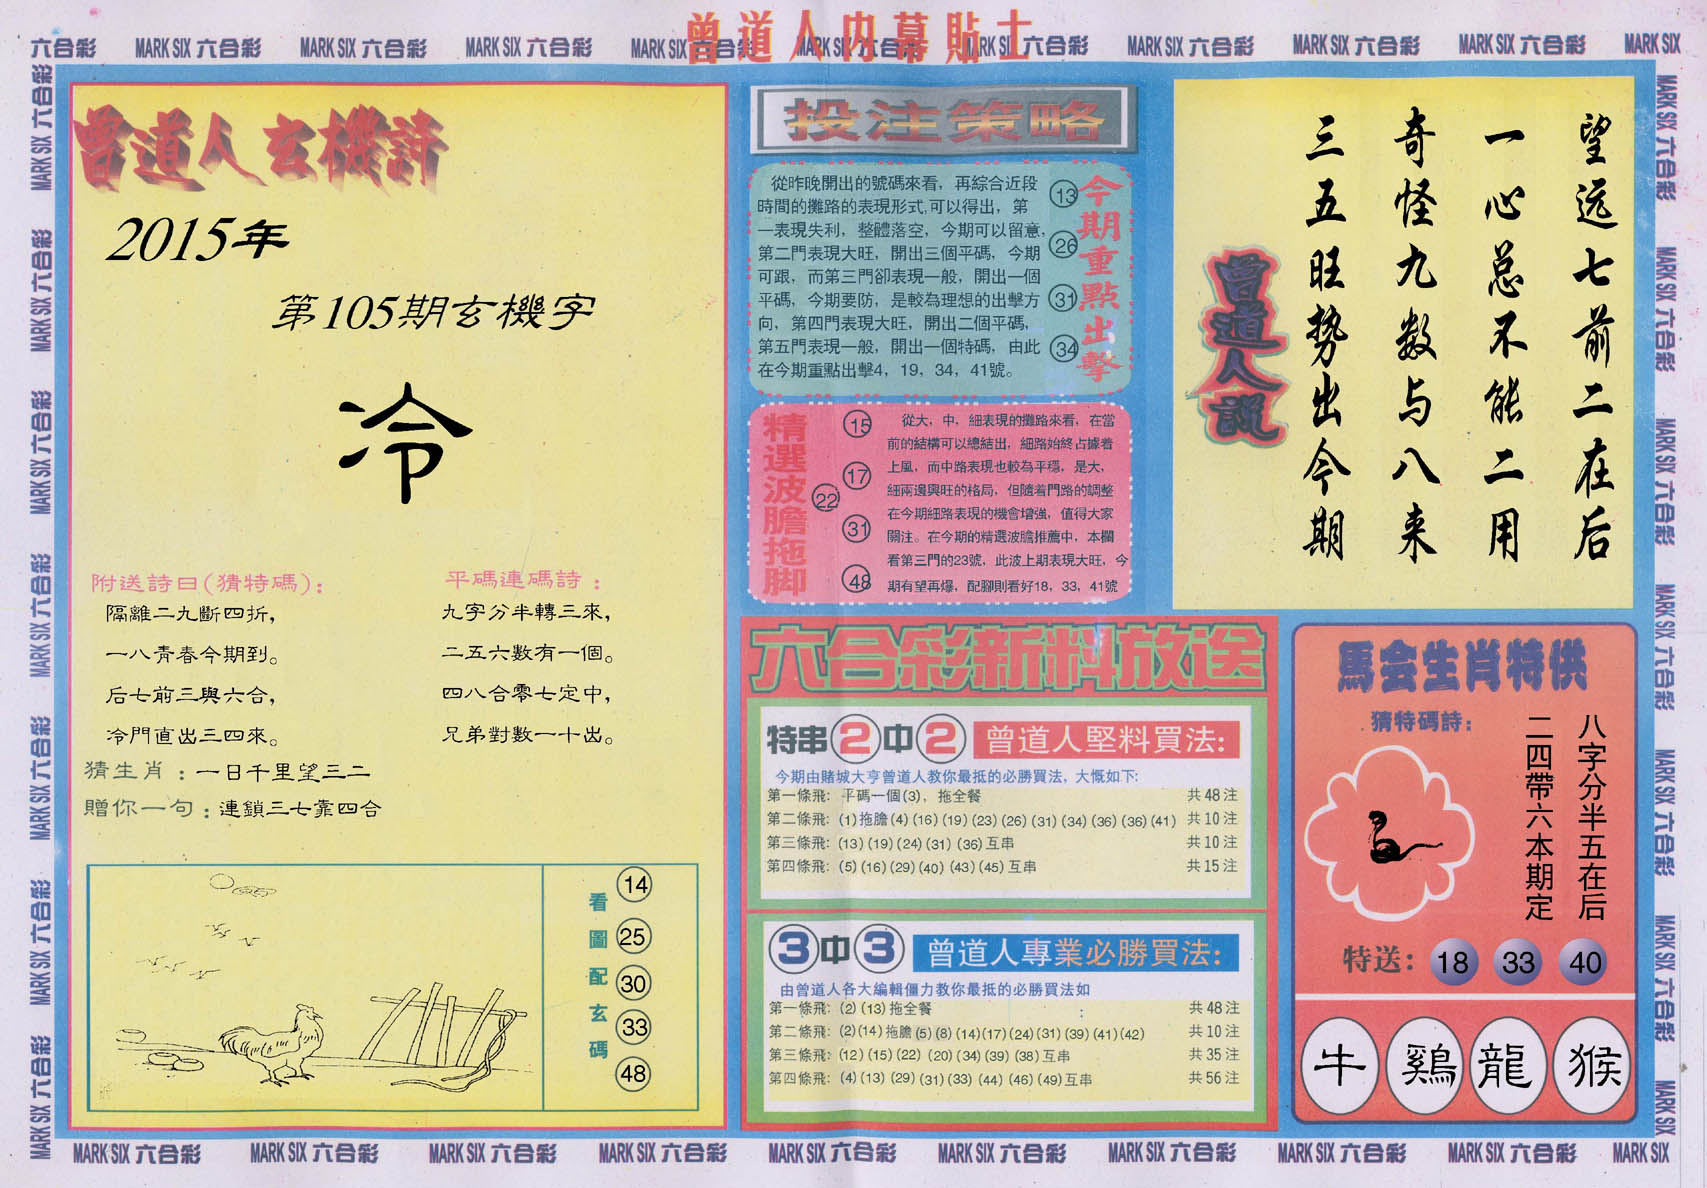 曾道人内幕貼士
六合彩 MARK SIX 六合彩 MARK SIX 六合彩 MARK SIX 六合彩 MARK SIX 六合彩 MARK SIX 六合彩 MARK SIX 六合彩 MARK SIX 六合彩 MARK SIX 六合彩 MARK SIX 六合彩 MARK SIX
曾道人玄機詩
2015年
第105期玄機字
冷
附送詩曰(猜特碼):
隔離二九斷四折,
一八青春今期到。
后七前三與六合,
冷門直出三四來。
平碼連碼詩:
九字分半轉三來,
二五六數有一個。
四八合零七定中,
兄弟對數一十出。
猜生肖:一日千里望三二
贈你一句:連鎖三七靠四合
看圖配玄碼
14
25
30
33
48
投注策略
從昨晚開出的號碼來看，再綜合近段
時間的攤路的表現形式,可以得出，第
一表現失利，整體落空，今期可以留意，
第二門表現大旺，開出三個平碼，今期
可跟，而第三門卻表現一般，開出一個
平碼，今期要防，是較為理想的出擊方
向，第四門表現大旺，開出二個平碼，
第五門表現一般，開出一個特碼，由此
在今期重點出擊4，19，34，41號。
13
26
31
34
今期重點出擊
精選波膽拖脚
15
17
22
31
48
從大，中，細表現的攤路來看，在當
前的結構可以總結出，細路始終占據着
上風，而中路表現也較為平穩，是大，
細兩邊興旺的格局，但隨着門路的調整
在今期細路表現的機會增強，值得大家
關注。在今期的精選波膽推薦中，本欄
看第三門的23號，此波上期表現大旺，今
期有望再爆，配腳則看好18，33，41號
六合彩新料放送
特串2中2 曾道人堅料買法:
今期由賭城大亨曾道人教你最抵的必勝買法，大慨如下:
第一條飛: 平碼一個(3)，拖全餐 共48注
第二條飛: (1)拖膽(4)(16)(19)(23)(26)(31)(34)(36)(36)(41) 共10注
第三條飛: (13)(19)(24)(31)(36)互串 共10注
第四條飛: (5)(16)(29)(40)(43)(45)互串 共15注
3中3 曾道人專業必勝買法:
由曾道人各大編輯僵力教你最抵的必勝買法如
第一條飛: (2)(13)拖全餐 共48注
第二條飛: (2)(14)拖膽(5)(8)(14)(17)(24)(31)(39)(41)(42) 共10注
第三條飛: (12)(15)(22)(20)(34)(39)(38)互串 共35注
第四條飛: (4)(13)(29)(31)(33)(44)(46)(49)互串 共56注
望远七前二在后
一心总不能二用
奇怪九数与八来
三五旺势出今期
曾道人説
馬会生肖特供
猜特碼詩:
八字分半五在后
二四帶六本期定
特送: 18 33 40
牛 鷄 龍 猴
MARK SIX 六合彩 MARK SIX 六合彩 MARK SIX 六合彩 MARK SIX 六合彩 MARK SIX 六合彩 MARK SIX 六合彩 MARK SIX 六合彩 MARK SIX 六合彩 MARK SIX 六合彩 MARK SIX